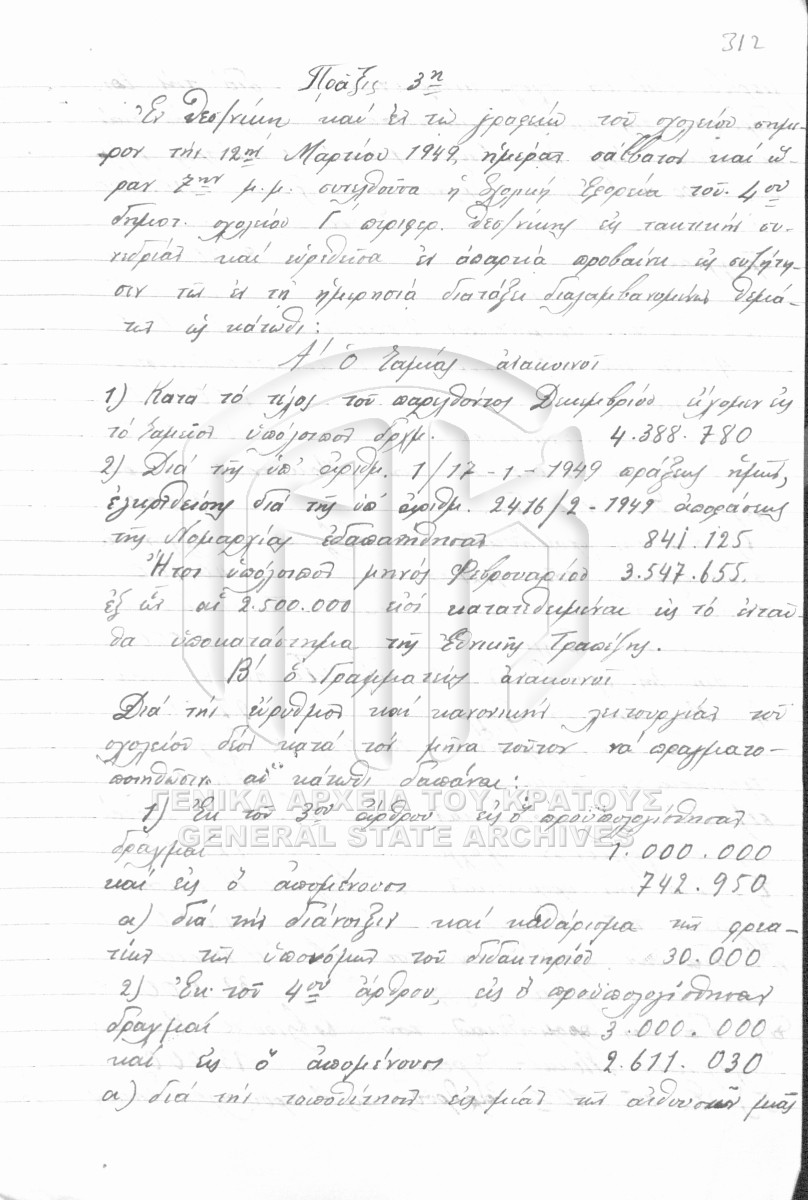 312
Πρᾶξις 3η
Ἐν Θεσ/νίκῃ καί ἐν τῷ γραφείῳ τοῦ σχολείου σήμε-
ρον τήν 12ην Μαρτίου 1949, ἡμέραν σάββατον καί ὥ-
ραν 7ην μ.μ. συνελθοῦσα ἡ Σχολική Ἐφορεία τοῦ 4ου
δημοτ. σχολείου Γ΄ περιφερ. Θεσ/νίκης εἰς τακτικήν συ-
νεδρίαν καί εὑρεθεῖσα ἐν ἀπαρτίᾳ προβαίνει εἰς συζήτη-
σιν τῶν ἐν τῇ ἡμερησίᾳ διατάξει διαλαμβανομένων θεμά-
των ὡς κάτωθι:
Α΄ ὁ Ταμίας ἀνακοινοῖ
1) Κατά τό τέλος τοῦ παρελθόντος Δεκεμβρίου εἴχομεν εἰς
τό ταμεῖον ὑπόλοιπον δρχμ. 4.388.780
2) Διά τῆς ὑπ' ἀριθμ. 1/17-1-1949 πράξεως ἡμῶν,
ἐγκριθείσης διά τῆς ὑπ' ἀριθμ. 2416/2-1949 ἀποφάσεως
τῆς Νομαρχίας ἐδαπανήθησαν 841.125
Ἤτοι ὑπόλοιπον μηνός Φεβρουαρίου 3.547.655.
ἐξ ὧν αἱ 2.500.000 εἰσί κατατεθειμέναι εἰς τό ἐνταῦ-
θα ὑποκατάστημα τῆς Ἐθνικῆς Τραπέζης.
Β΄ ὁ Γραμματεύς ἀνακοινοῖ
Διά τήν εὔρυθμον καί κανονικήν λειτουργίαν τοῦ
σχολείου δέον κατά τόν μῆνα τοῦτον νά πραγματο-
ποιηθῶσιν αἱ κάτωθι δαπάναι:
ΓΕΝΙΚΑ ΑΡΧΕΙΑ ΤΟΥ ΚΡΑΤΟΥΣ
1) Ἐκ τοῦ 3ου ἄρθρου εἰς ὅ προϋπολογίσθησαν
GENERAL STATE ARCHIVES
δραχμαί 1.000.000
καί εἰς ὅ ἀπομένουσι 742.950
α) διά τήν διάνοιξιν καί καθάρισμα τῶν φρεα-
τίων τῶν ὑπονόμων τοῦ διδακτηρίου 30.000
2) Ἐκ τοῦ 4ου ἄρθρου, εἰς ὅ προϋπολογίσθησαν
δραχμαί 3.000.000
καί εἰς ὅ ἀπομένουσι 2.611.030
α) διά τήν τοποθέτησιν εἰς μίαν τῶν αἰθουσῶν μιᾶς